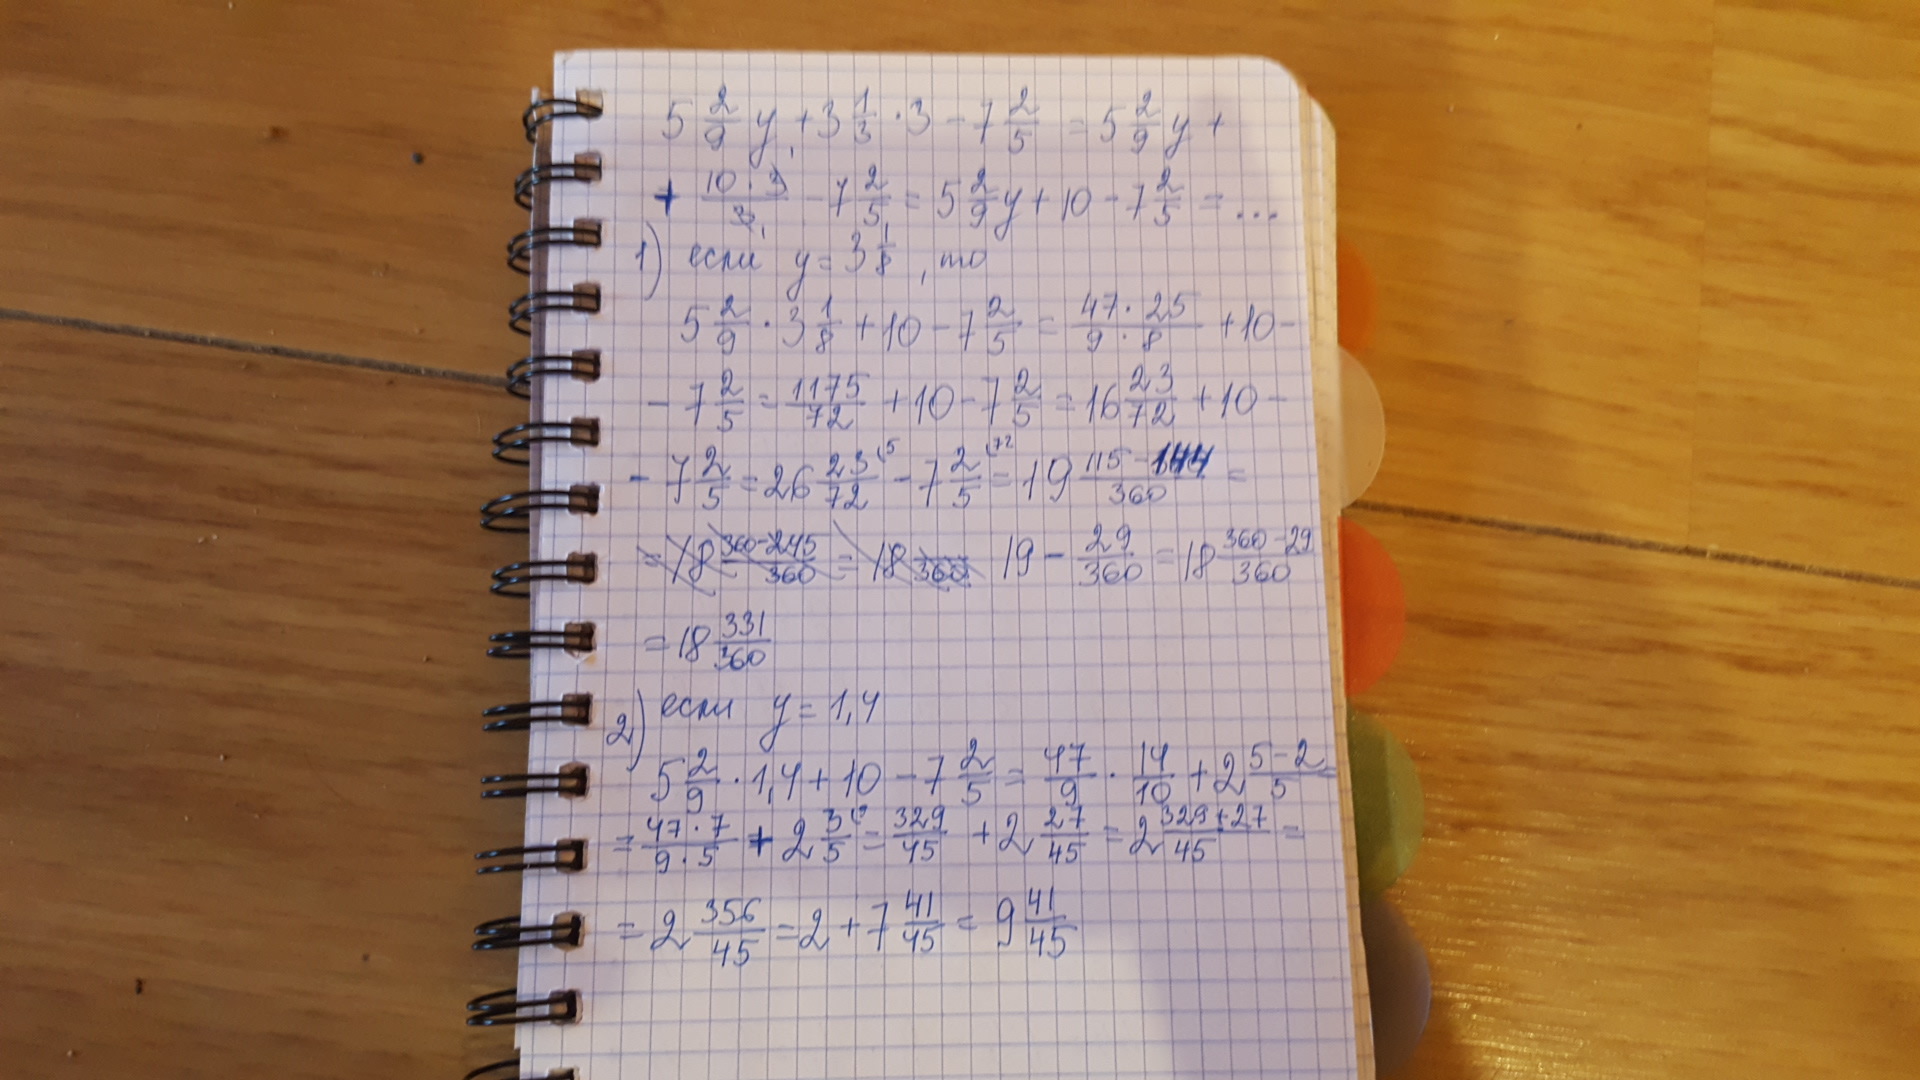 5 2/9 y + 3 1/3 · 3 - 7 2/5 = 5 2/9 y +
+ 10 · 3/3 - 7 2/5 = 5 2/9 y + 10 - 7 2/5 = ...
1) если y = 3 1/8, то
5 2/9 · 3 1/8 + 10 - 7 2/5 = 47 · 25/9 · 8 + 10 -
- 7 2/5 = 1175/72 + 10 - 7 2/5 = 16 23/72 + 10 -
- 7 2/5 = 26 23/72 (5 - 7 2/5 (72 = 19 115 - 144/360 =
= 18 360 - 245/360 = 18 /360 19 - 29/360 = 18 360 - 29/360
= 18 331/360
2) если y = 1,4
5 2/9 · 1,4 + 10 - 7 2/5 = 47/9 · 14/10 + 2 5 - 2/5 =
= 47 · 7/9 · 5 + 2 3/5 (9 = 329/45 + 2 27/45 = 2 329 + 27/45 =
= 2 356/45 = 2 + 7 41/45 = 9 41/45